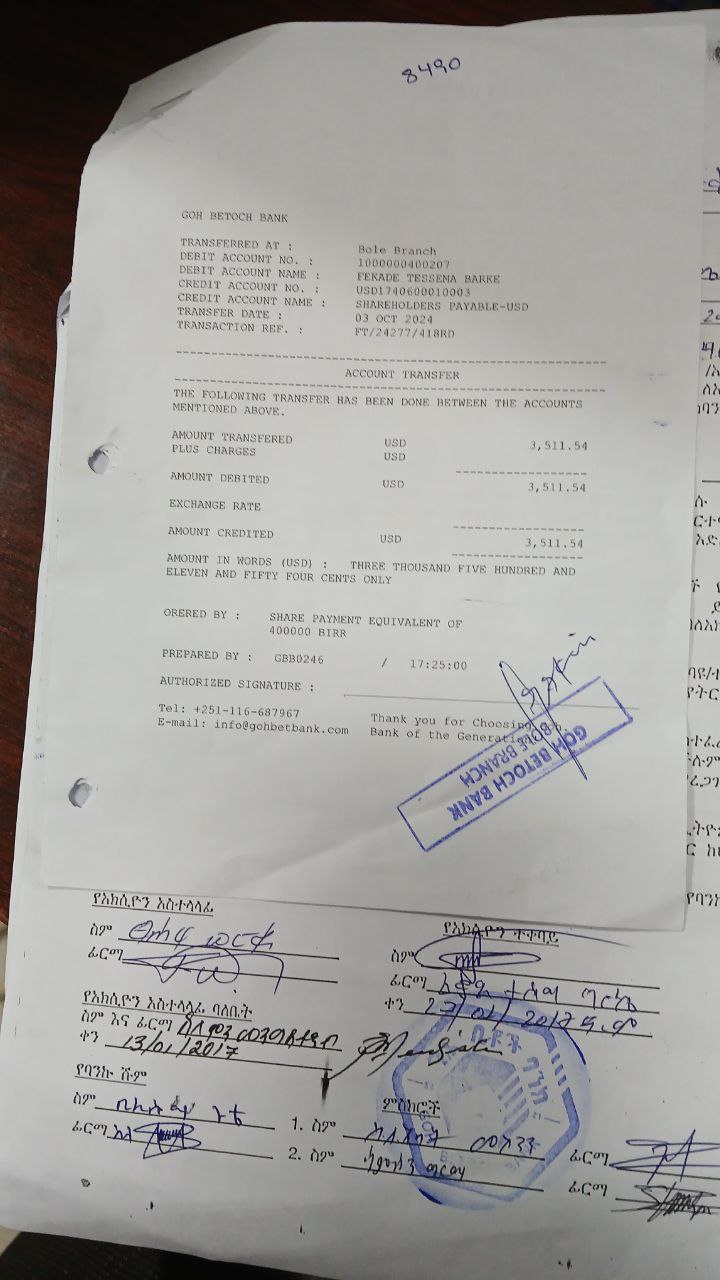 8490
GOH BETOCH BANK
TRANSFERRED AT : Bole Branch
DEBIT ACCOUNT NO. : 1000000400207
DEBIT ACCOUNT NAME : FEKADE TESSEMA BARKE
CREDIT ACCOUNT NO. : USD1740600010003
CREDIT ACCOUNT NAME : SHAREHOLDERS PAYABLE-USD
TRANSFER DATE : 03 OCT 2024
TRANSACTION REF. : FT/24277/418RD
ACCOUNT TRANSFER
THE FOLLOWING TRANSFER HAS BEEN DONE BETWEEN THE ACCOUNTS
MENTIONED ABOVE.
AMOUNT TRANSFERED USD 3,511.54
PLUS CHARGES USD
AMOUNT DEBITED USD 3,511.54
EXCHANGE RATE
AMOUNT CREDITED USD 3,511.54
AMOUNT IN WORDS (USD) : THREE THOUSAND FIVE HUNDRED AND
ELEVEN AND FIFTY FOUR CENTS ONLY
ORERED BY : SHARE PAYMENT EQUIVALENT OF
400000 BIRR
PREPARED BY : GBB0246 / 17:25:00
AUTHORIZED SIGNATURE :
Tel: +251-116-687967 Thank you for Choosing
E-mail: info@gohbetbank.com Bank of the Generation
GOH BETOCH BANK
BOLE BRANCH
የአክሲዮን አስተላላፊ
ስም
ፊርማ
የአክሲዮን ተቀባይ
ስም
ፊርማ
ቀን 23/01/2017 ዓ.ም
የአክሲዮን አስተላላፊ ባለቤት
ስም እና ፊርማ
ቀን 13/01/2017
የባንኩ ሹም
ስም
ፊርማ
ምስክሮች
1. ስም ፊርማ
2. ስም ፊርማ
ቤቶች ባንክ